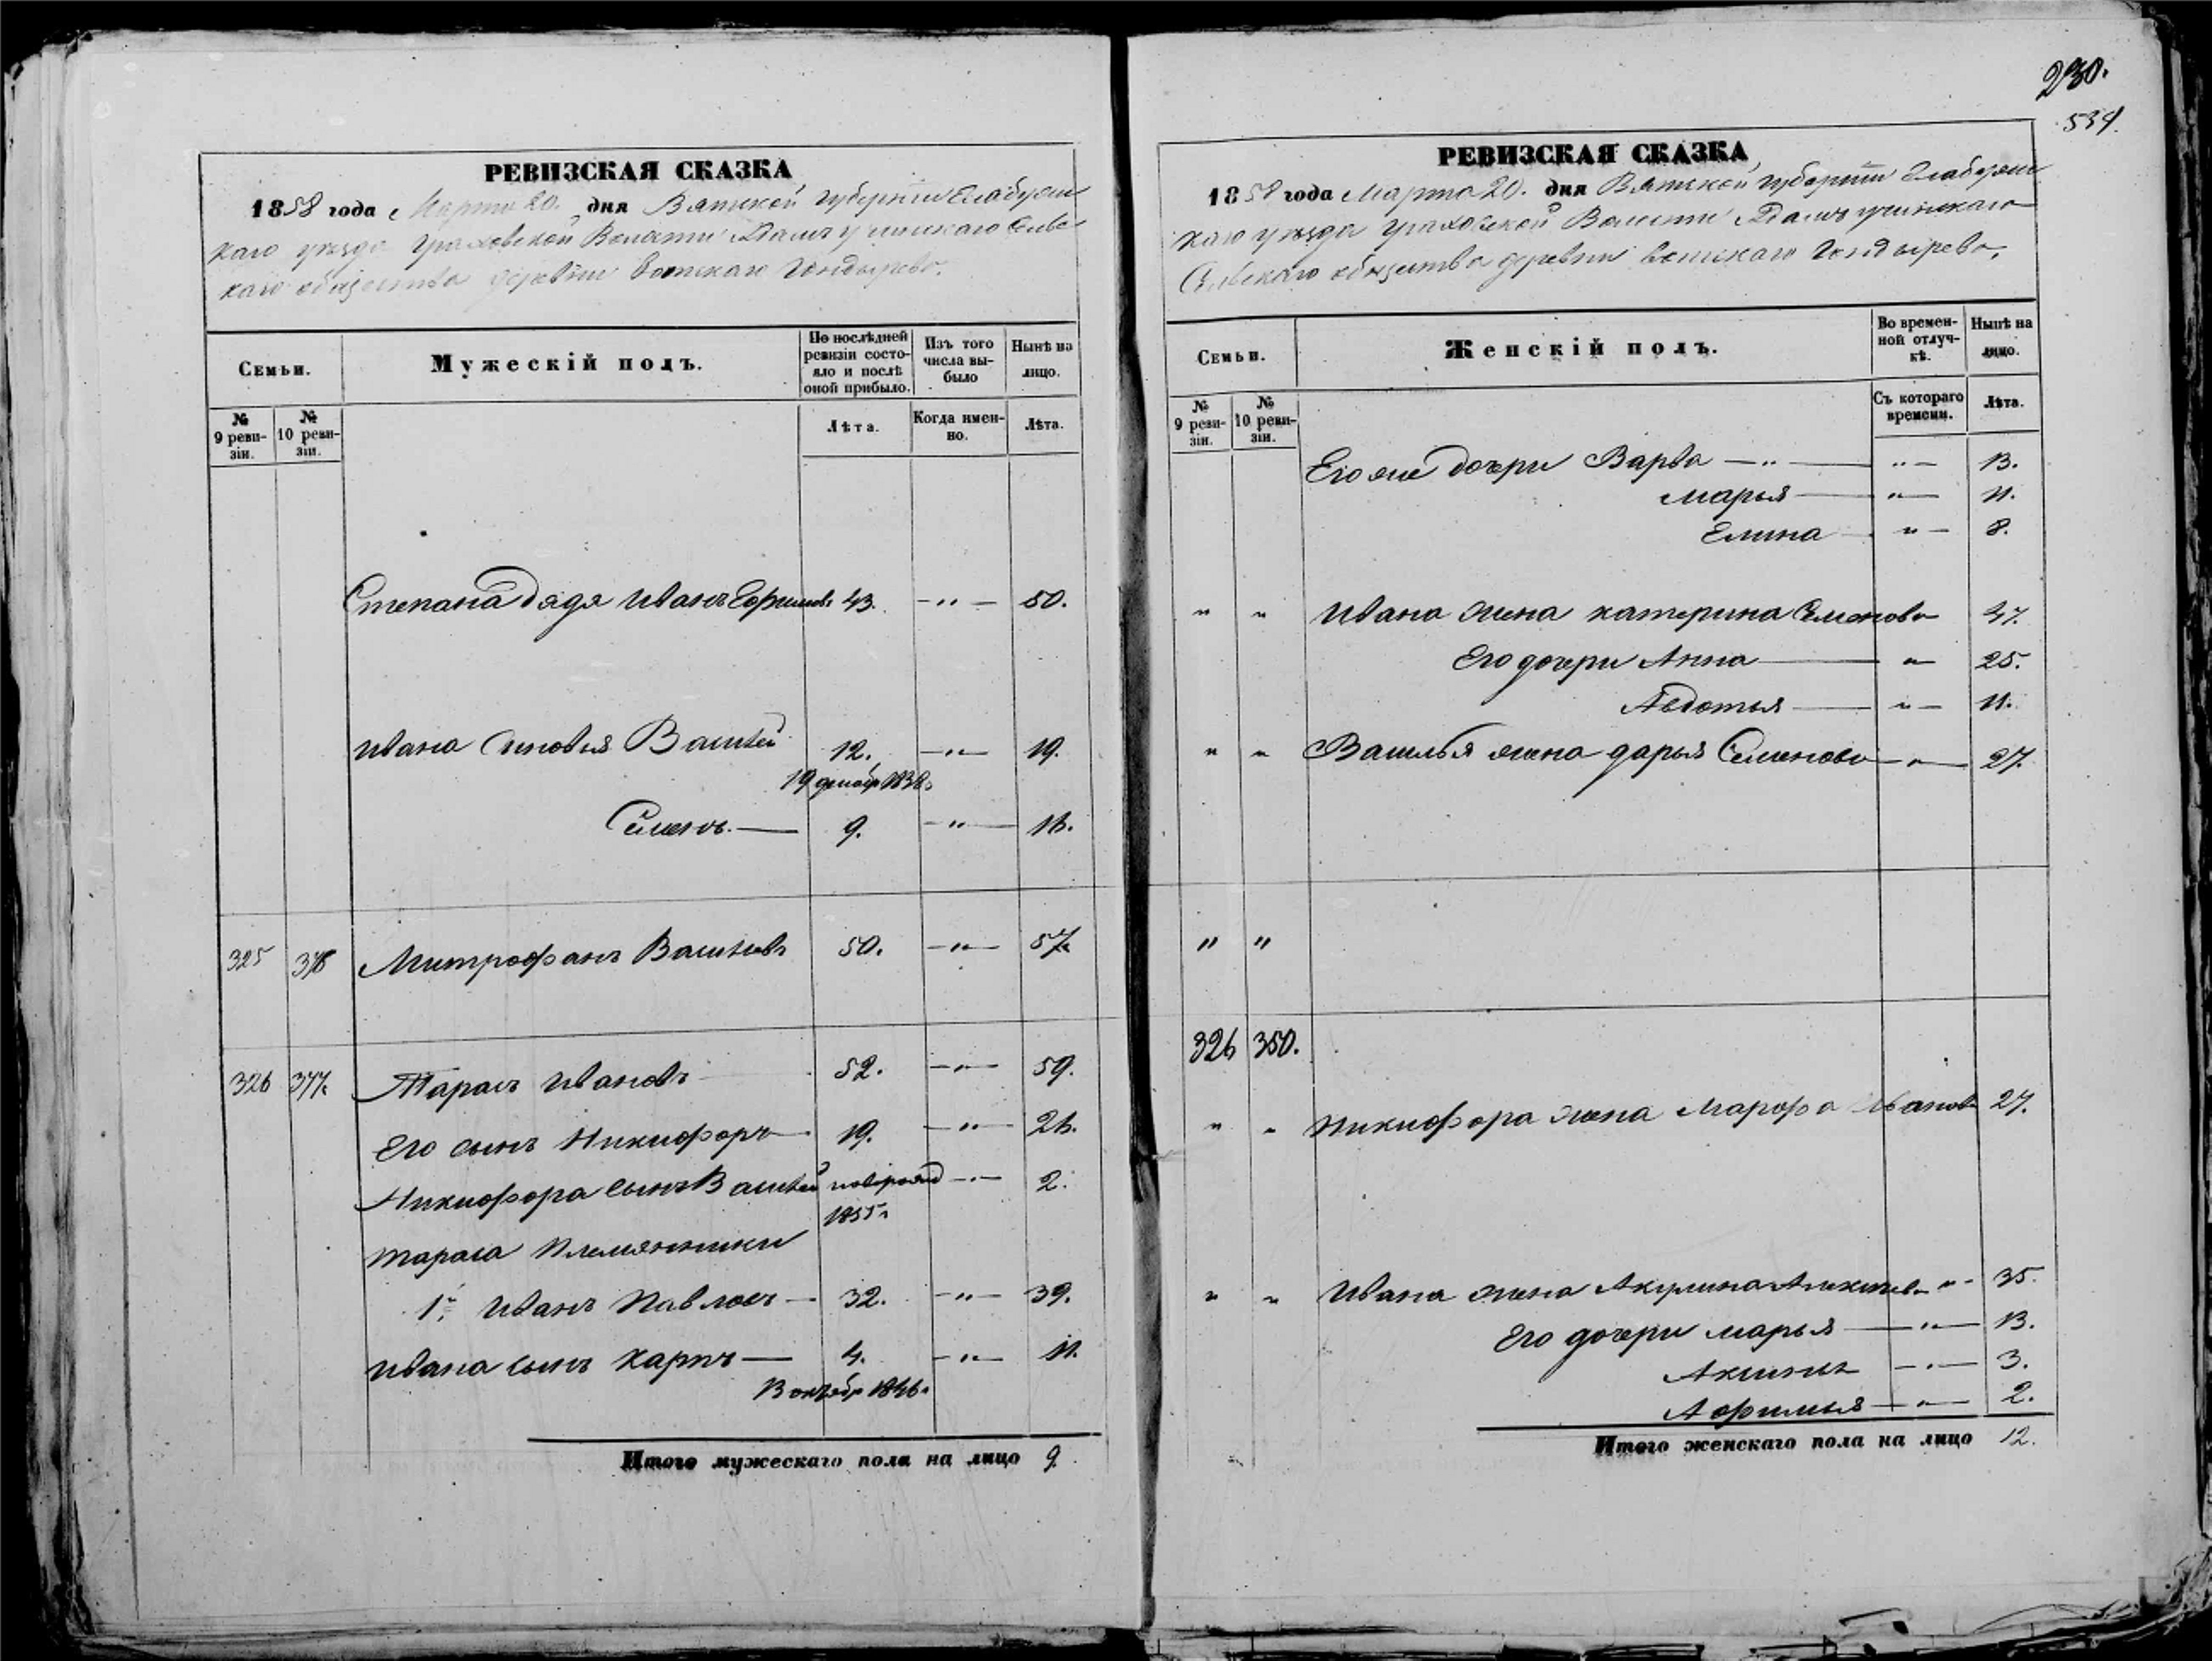 230.
534.
РЕВИЗСКАЯ СКАЗКА
1858 года Марта 20. дня Вятской губерніи Елабужс
каго уѣзда Граховской Волости Сельс
каго общества деревни Вотскаго Гондырева.
Семьи.
Мужескій полъ.
По послѣдней ревизіи состояло и послѣ оной прибыло.
Изъ того числа выбыло
Нынѣ на лицо.
№ 9 ревизіи.
№ 10 ревизіи.
Лѣта.
Когда именно.
Лѣта.
Степана дядя Иванъ Ефимовъ 43. —"— 50.
Ивана сыновья Василей 12. —"— 19.
19 декабр 1838.
Семенъ. — 9. —"— 16.
325 376 Митрофанъ Васильевъ 50. —"— 57.
326 377. Тарасъ Ивановъ 52. —"— 59.
Его сынъ Никифоръ 19. —"— 26.
Никифора сынъ Василей новорожд —"— 2.
1855.
Тараса племянники
1й Иванъ Павловъ — 32. —"— 39.
Ивана сынъ Карпъ — 4. —"— 11.
13 октябр 1846.
Итого мужескаго пола на лицо 9.
РЕВИЗСКАЯ СКАЗКА
1858 года Марта 20. дня Вятской губерніи Елабужс
каго уѣзда Граховской Волости
Сельскаго общества деревни Вотскаго Гондырева.
Семьи.
Женскій полъ.
Во временной отлучкѣ.
Нынѣ на лицо.
№ 9 ревизіи.
№ 10 ревизіи.
Съ котораго времени.
Лѣта.
Его же дочери Варва —"— "— 13.
Марья — "— 11.
Елина — "— 8.
" " Ивана жена Катерина Семенова 47.
Его дочери Анна — "— 25.
Авдотья — "— 11.
" " Василья жена Дарья Семенова —"— 27.
" "
326 350.
" " Никифора жена Марфа Иванова 27.
" " Ивана жена Акулина Алексѣева "- 35.
Его дочери Марья —"— 13.
Аксинья —"— 3.
Афимья —"— 2.
Итого женскаго пола на лицо 12.